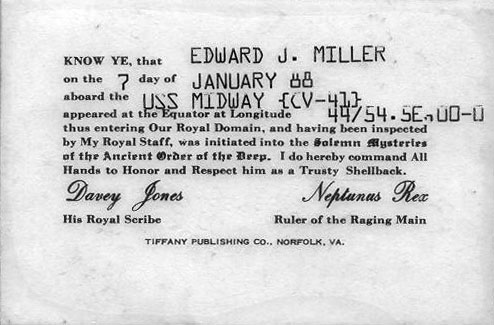 KNOW YE, that EDWARD J. MILLER
on the 7 day of JANUARY 88
aboard the USS MIDWAY {CV-41}
appeared at the Equator at Longitude 44/54.5E, 00-0
thus entering Our Royal Domain, and having been inspected
by My Royal Staff, was initiated into the Solemn Mysteries
of the Ancient Order of the Deep. I do hereby command All
Hands to Honor and Respect him as a Trusty Shellback.
Davey Jones Neptunus Rex
His Royal Scribe Ruler of the Raging Main
TIFFANY PUBLISHING CO., NORFOLK, VA.